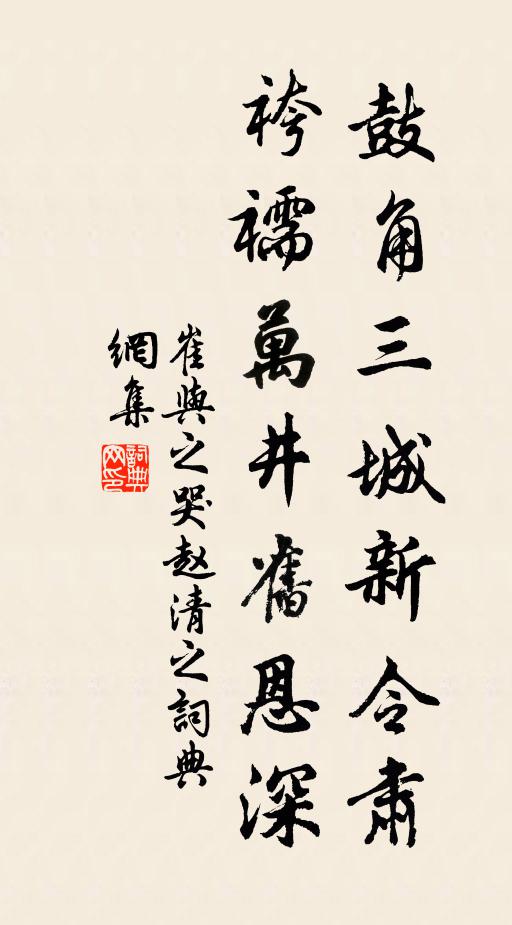 鼓角三城新令肅
袴襦萬井舊恩深
崔與之哭赵清之詞典
網集
詞典
网印